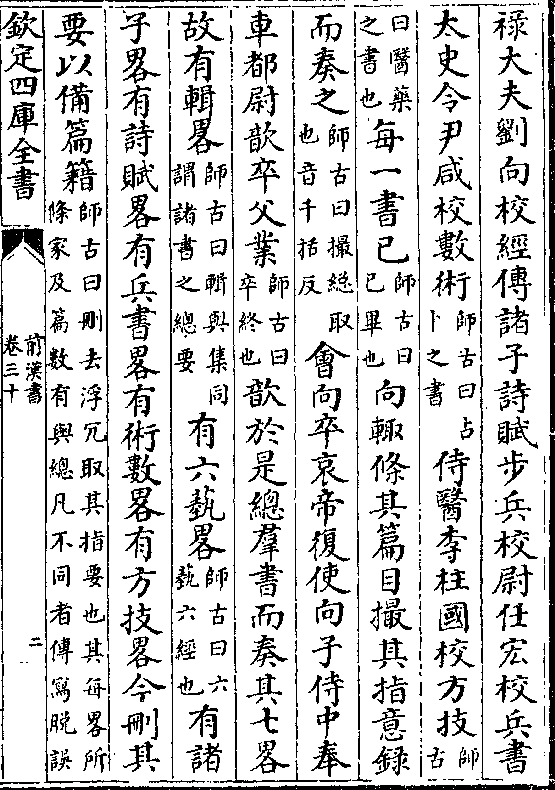 祿大夫劉向校經傳諸子詩賦步兵校尉任宏校兵書
太史令尹咸校數術師古曰占卜之書侍醫李柱國校方技師古
曰醫藥之書也每一書已師古曰已畢也向輙條其篇目撮其指意錄
而奏之師古曰撮緫取也音千括反會向卒哀帝復使向子侍中奉
車都尉歆卒父業師古曰卒終也歆於是總羣書而奏其七畧
故有輯畧師古曰輯與集同謂諸書之總要有六藝畧師古曰六藝六經也有諸
子畧有詩賦畧有兵書畧有術數畧有方技畧今刪其
要以備篇籍師古曰刪去浮冗取其指要也其每畧所條家及篇數有與總凡不同者傳寫脫誤
欽定四庫全書
前漢書
卷三十
二